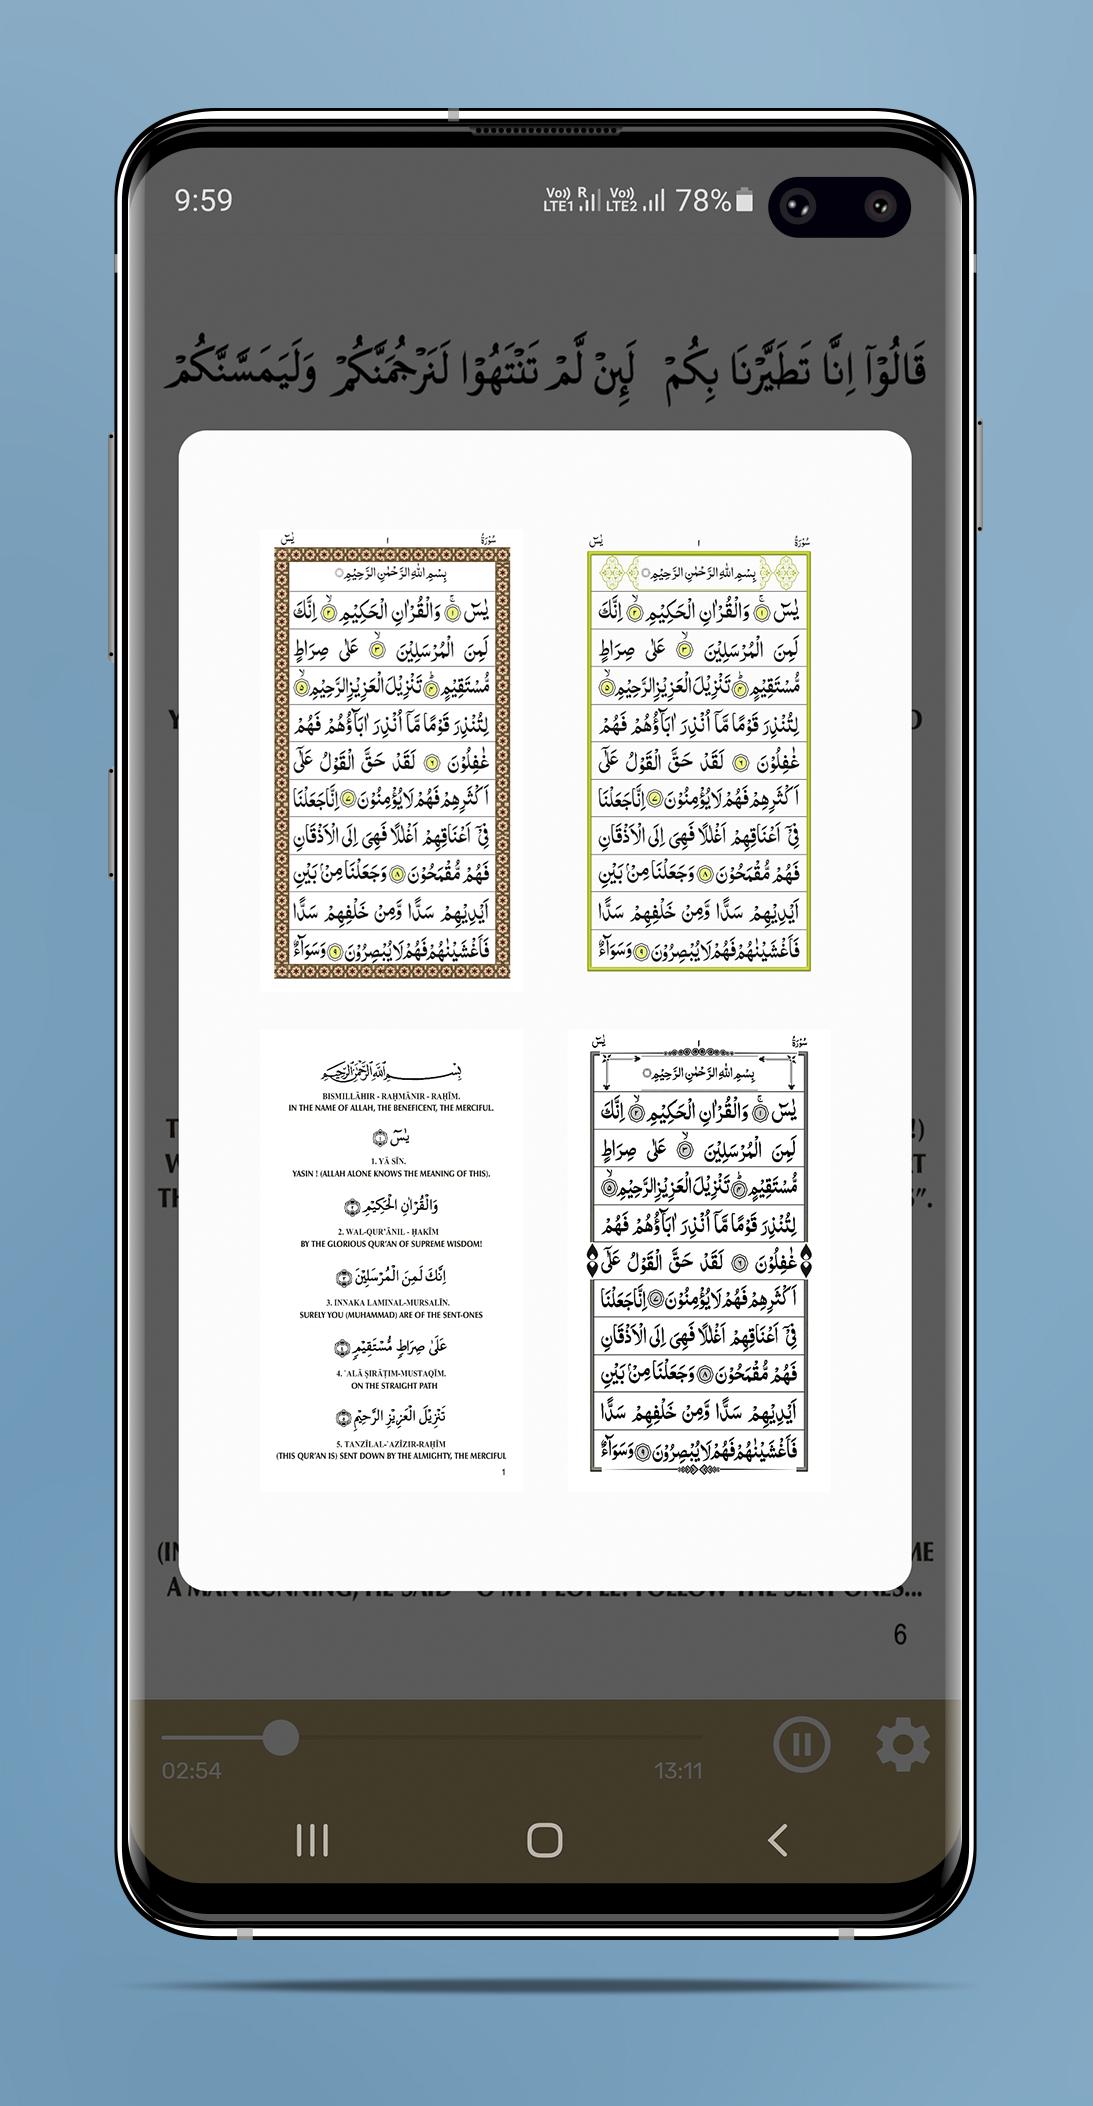 9:59
Vo)) R LTE1 Vo)) LTE2 78%
قَالُوْٓا اِنَّا تَطَيَّرْنَا بِكُمْ لَىِٕنْ لَّمْ تَنْتَهُوْا لَنَرْجُمَنَّكُمْ وَلَيَمَسَّنَّكُمْ
سُوْرَةُ ١ يٰسٓ
بِسْمِ اللّٰهِ الرَّحْمٰنِ الرَّحِيْمِ
يٰسٓ ۚ ١ وَالْقُرْاٰنِ الْحَكِيْمِ ۙ ٢ اِنَّكَ
لَمِنَ الْمُرْسَلِيْنَ ۙ ٣ عَلٰى صِرَاطٍ
مُّسْتَقِيْمٍ ؕ ٤ تَنْزِيْلَ الْعَزِيْزِ الرَّحِيْمِ ۙ ٥
لِتُنْذِرَ قَوْمًا مَّاۤ اُنْذِرَ اٰبَآؤُهُمْ فَهُمْ
غٰفِلُوْنَ ٦ لَقَدْ حَقَّ الْقَوْلُ عَلٰٓى
اَكْثَرِهِمْ فَهُمْ لَا يُؤْمِنُوْنَ ٧ اِنَّا جَعَلْنَا
فِيْۤ اَعْنَاقِهِمْ اَغْلٰلًا فَهِىَ اِلَى الْاَذْقَانِ
فَهُمْ مُّقْمَحُوْنَ ٨ وَجَعَلْنَا مِنْۢ بَيْنِ
اَيْدِيْهِمْ سَدًّا وَّمِنْ خَلْفِهِمْ سَدًّا
فَاَغْشَيْنٰهُمْ فَهُمْ لَا يُبْصِرُوْنَ ٩ وَسَوَآءٌ
سُوْرَةُ ١ يٰسٓ
بِسْمِ اللّٰهِ الرَّحْمٰنِ الرَّحِيْمِ
يٰسٓ ۚ ١ وَالْقُرْاٰنِ الْحَكِيْمِ ۙ ٢ اِنَّكَ
لَمِنَ الْمُرْسَلِيْنَ ۙ ٣ عَلٰى صِرَاطٍ
مُّسْتَقِيْمٍ ؕ ٤ تَنْزِيْلَ الْعَزِيْزِ الرَّحِيْمِ ۙ ٥
لِتُنْذِرَ قَوْمًا مَّاۤ اُنْذِرَ اٰبَآؤُهُمْ فَهُمْ
غٰفِلُوْنَ ٦ لَقَدْ حَقَّ الْقَوْلُ عَلٰٓى
اَكْثَرِهِمْ فَهُمْ لَا يُؤْمِنُوْنَ ٧ اِنَّا جَعَلْنَا
فِيْۤ اَعْنَاقِهِمْ اَغْلٰلًا فَهِىَ اِلَى الْاَذْقَانِ
فَهُمْ مُّقْمَحُوْنَ ٨ وَجَعَلْنَا مِنْۢ بَيْنِ
اَيْدِيْهِمْ سَدًّا وَّمِنْ خَلْفِهِمْ سَدًّا
فَاَغْشَيْنٰهُمْ فَهُمْ لَا يُبْصِرُوْنَ ٩ وَسَوَآءٌ
بِسْمِ اللّٰهِ الرَّحْمٰنِ الرَّحِيْمِ
BISMILLĀHIR - RAḤMĀNIR - RAḤĪM.
IN THE NAME OF ALLAH, THE BENEFICENT, THE MERCIFUL.
يٰسٓ ١
1. YĀ SĪN.
YASIN ! (ALLAH ALONE KNOWS THE MEANING OF THIS).
وَالْقُرْاٰنِ الْحَكِيْمِ ٢
2. WAL-QUR'ĀNIL - ḤAKĪM
BY THE GLORIOUS QUR'AN OF SUPREME WISDOM!
اِنَّكَ لَمِنَ الْمُرْسَلِيْنَ ٣
3. INNAKA LAMINAL-MURSALĪN.
SURELY YOU (MUHAMMAD) ARE OF THE SENT-ONES
عَلٰى صِرَاطٍ مُّسْتَقِيْمٍ ٤
4. 'ALĀ ṢIRĀṬIM-MUSTAQĪM.
ON THE STRAIGHT PATH
تَنْزِيْلَ الْعَزِيْزِ الرَّحِيْمِ ٥
5. TANZĪLAL-'AZĪZIR-RAḤĪM
(THIS QUR'AN IS) SENT DOWN BY THE ALMIGHTY, THE MERCIFUL
1
سُوْرَةُ ١ يٰسٓ
بِسْمِ اللّٰهِ الرَّحْمٰنِ الرَّحِيْمِ
يٰسٓ ۚ ١ وَالْقُرْاٰنِ الْحَكِيْمِ ۙ ٢ اِنَّكَ
لَمِنَ الْمُرْسَلِيْنَ ۙ ٣ عَلٰى صِرَاطٍ
مُّسْتَقِيْمٍ ؕ ٤ تَنْزِيْلَ الْعَزِيْزِ الرَّحِيْمِ ۙ ٥
لِتُنْذِرَ قَوْمًا مَّاۤ اُنْذِرَ اٰبَآؤُهُمْ فَهُمْ
غٰفِلُوْنَ ٦ لَقَدْ حَقَّ الْقَوْلُ عَلٰٓى
اَكْثَرِهِمْ فَهُمْ لَا يُؤْمِنُوْنَ ٧ اِنَّا جَعَلْنَا
فِيْۤ اَعْنَاقِهِمْ اَغْلٰلًا فَهِىَ اِلَى الْاَذْقَانِ
فَهُمْ مُّقْمَحُوْنَ ٨ وَجَعَلْنَا مِنْۢ بَيْنِ
اَيْدِيْهِمْ سَدًّا وَّمِنْ خَلْفِهِمْ سَدًّا
فَاَغْشَيْنٰهُمْ فَهُمْ لَا يُبْصِرُوْنَ ٩ وَسَوَآءٌ
A MAN RUNNING, HE SAID " O MY PEOPLE! FOLLOW THE SENT-ONES...
6
02:54 13:11